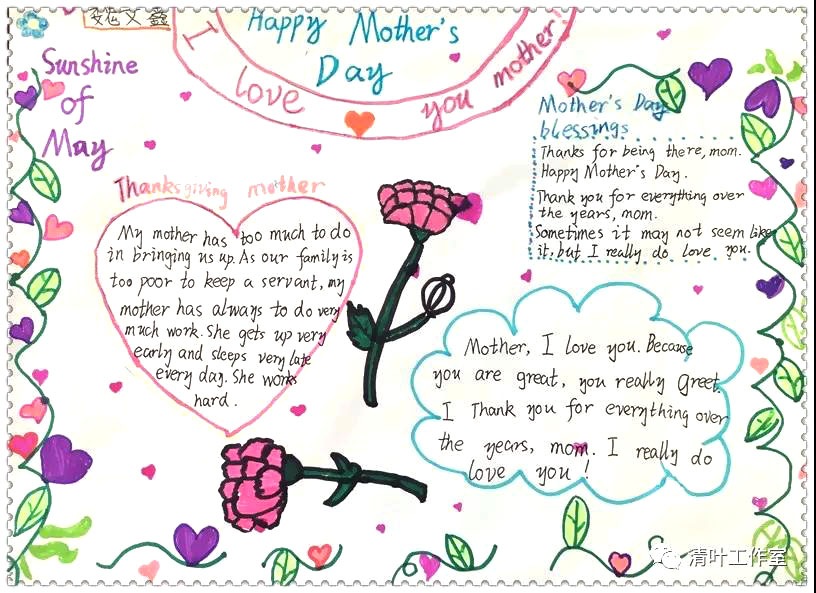 魏文鑫
Happy Mother's
Day
I love you mother!
Sunshine
of
May
Mother's Day
blessings
Thanks for being there, mom.
Happy Mother's Day.
Thank you for everything over
the years, mom.
Sometimes it may not seem like
it, but I really do love you.
Thanksgiving mother
My mother has too much to do
in bringing us up. As our family is
too poor to keep a servant, my
mother has always to do very
much work. She gets up very
early and sleeps very late
every day. She works
hard.
Mother, I love you. Because
you are great, you really Greet.
I Thank you for everything over
the years, mom. I really do
love you!
清叶工作室